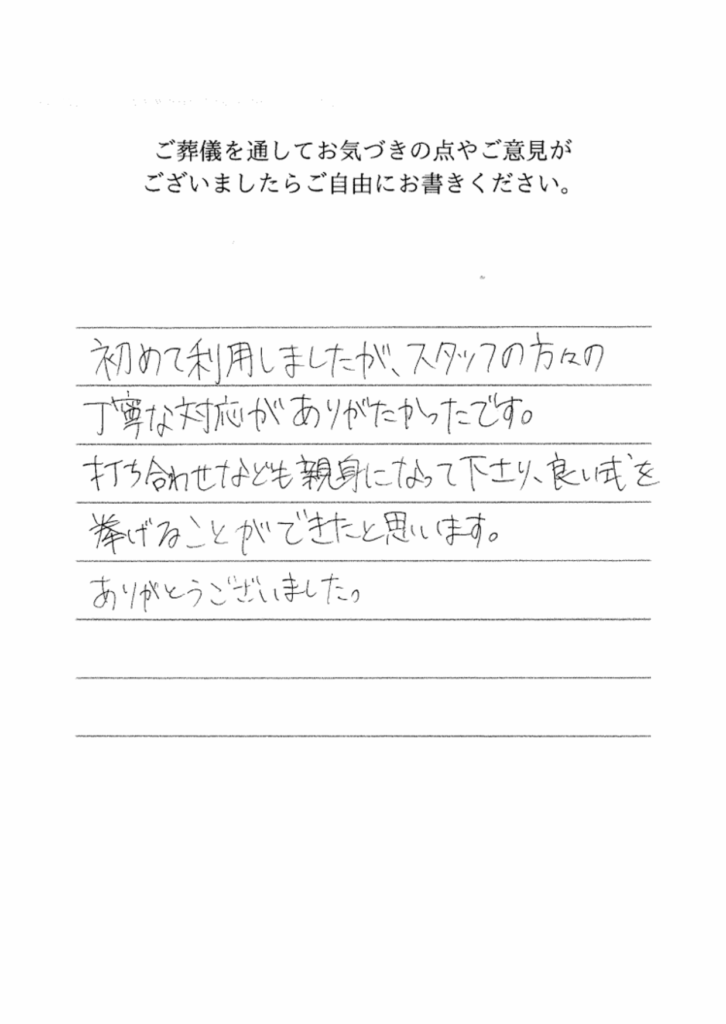 ご葬儀を通してお気づきの点やご意見が
ございましたらご自由にお書きください。
初めて利用しましたが、スタッフの方々の
丁寧な対応がありがたかったです。
打ち合わせなども親身になって下さり、良い式を
挙げることができたと思います。
ありがとうございました。